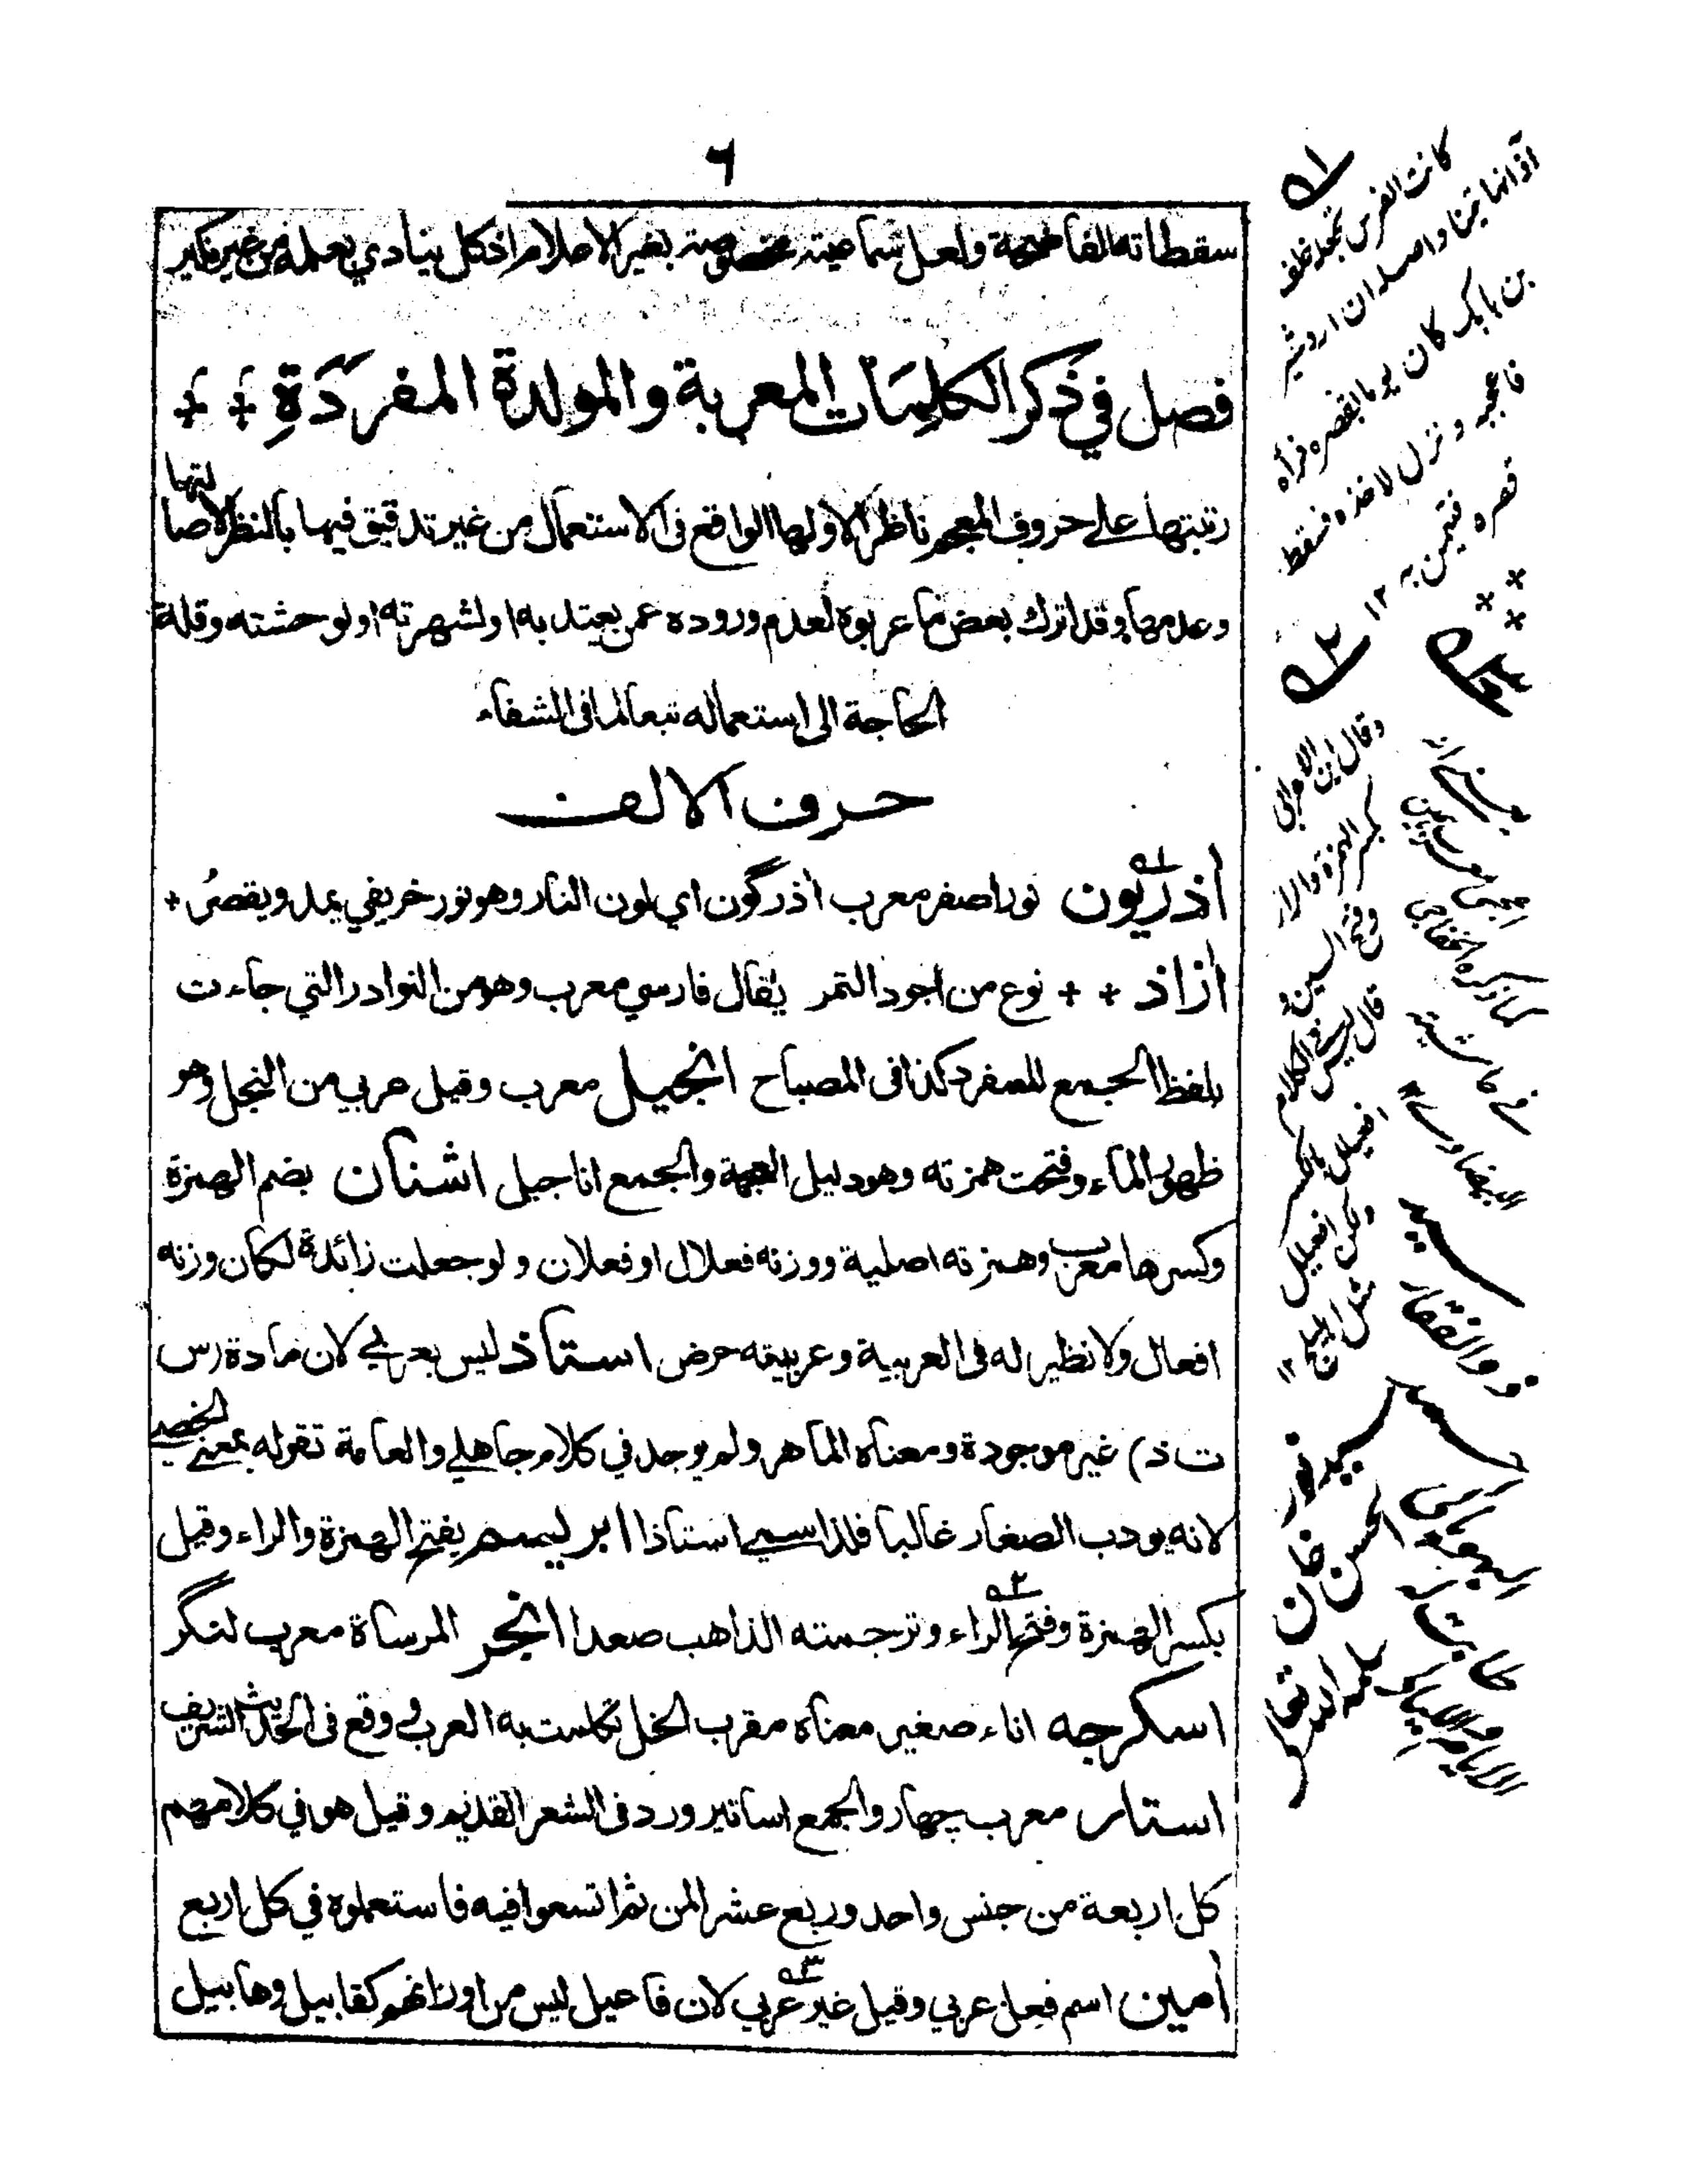 ٦
سقطاته الفاضحة ولعل سماعيته مخصوصة بغير الاعلام اذ كل ينادي بعلمه من غير نكير
فصل في ذكر الكلمات المعربة والمولدة المفردة
رتبتها على حروف المعجم ناظرا لاولها الواقع فى الاستعمال من غير تدقيق فيها بالنظر لاصالتها
وعدمها وقد اترك بعض ما عربوه لعدم وروده عمن يعتد به او لشهرته او لوحشته وقلة
الحاجة الى استعماله تبعا لما فى الشفاء
حرف الالف
اٰذريون نور اصفر معرب اٰذرگون اي لون النار وهو نور خريفي يمد ويقصر +
اٰزاذ + + نوع من اجود التمر يقال فارسي معرب وهو من النوادر التي جاءت
بلفظ الجمع للمفرد كذا فى المصباح انجيل معرب وقيل عربي من النجل وهو
ظهور الماء وفتحت همزته وهو دليل العجمة والجمع اناجيل اشنان بضم الهمزة
وكسرها معرب وهمزته اصلية ووزنه فعلال او فعلان ولو جعلت زائدة لكان وزنه
افعال ولا نظير له فى العربية وعربيته حرض استاذ ليس بعربي لان مادة (س
ت ذ) غير موجودة ومعناه الماهر ولم يوجد في كلام جاهلي والعامة تقوله بمعنى الخصي
لانه يودب الصغار غالبا فلذا سمي استاذا ابريسم بفتح الهمزة والراء وقيل
بكسر الهمزة وفتح الراء وترجمته الذاهب صعدا انجر المرساة معرب لنگر
اسكرجه اناء صغير معناه مقرب الخل تكلمت به العرب ووقع فى الحديث الشريف
استار معرب چهار والجمع اساتير ورد فى الشعر القديم وقيل هو في كلامهم
كل اربعة من جنس واحد وربع عشر المن ثم اتسعوا فيه فاستعملوه في كل اربع
اٰمين اسم فعل عربي وقيل غير عربي لان فاعيل ليس من اوزانهم كقابيل وهابيل
كانت الفرس تجعله خلف
آذانها تيمنا واصله ان اردشير
بن بابك كان يوما بقصره فرآه
فاعجبه ونزل لاخذه فسقط
قصره فتيمن به ١٢
وقال ابن الاعرابي
بكسر الهمزة والراء
وفتح السين و
قال ليس في الكلام
افعيلل بالكسر
ولكن افعيلل
مثل اهليلج ١٢
سيد نور
الحسن خان
سلمه الله تعالى